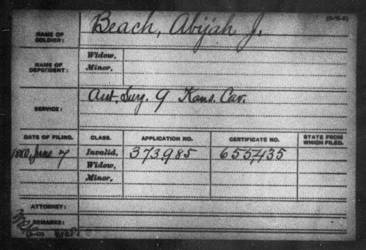 (3-15-6)
NAME OF SOLDIER: Beach, Abijah J.
NAME OF DEPENDENT: Widow,
Minor,
SERVICE: Ast. Surg. 9 Kans. Cav.
DATE OF FILING. CLASS. APPLICATION NO. CERTIFICATE NO. STATE FROM WHICH FILED.
1880, June 7 Invalid, 373,985 655,435
Widow,
Minor,
ATTORNEY:
REMARKS: